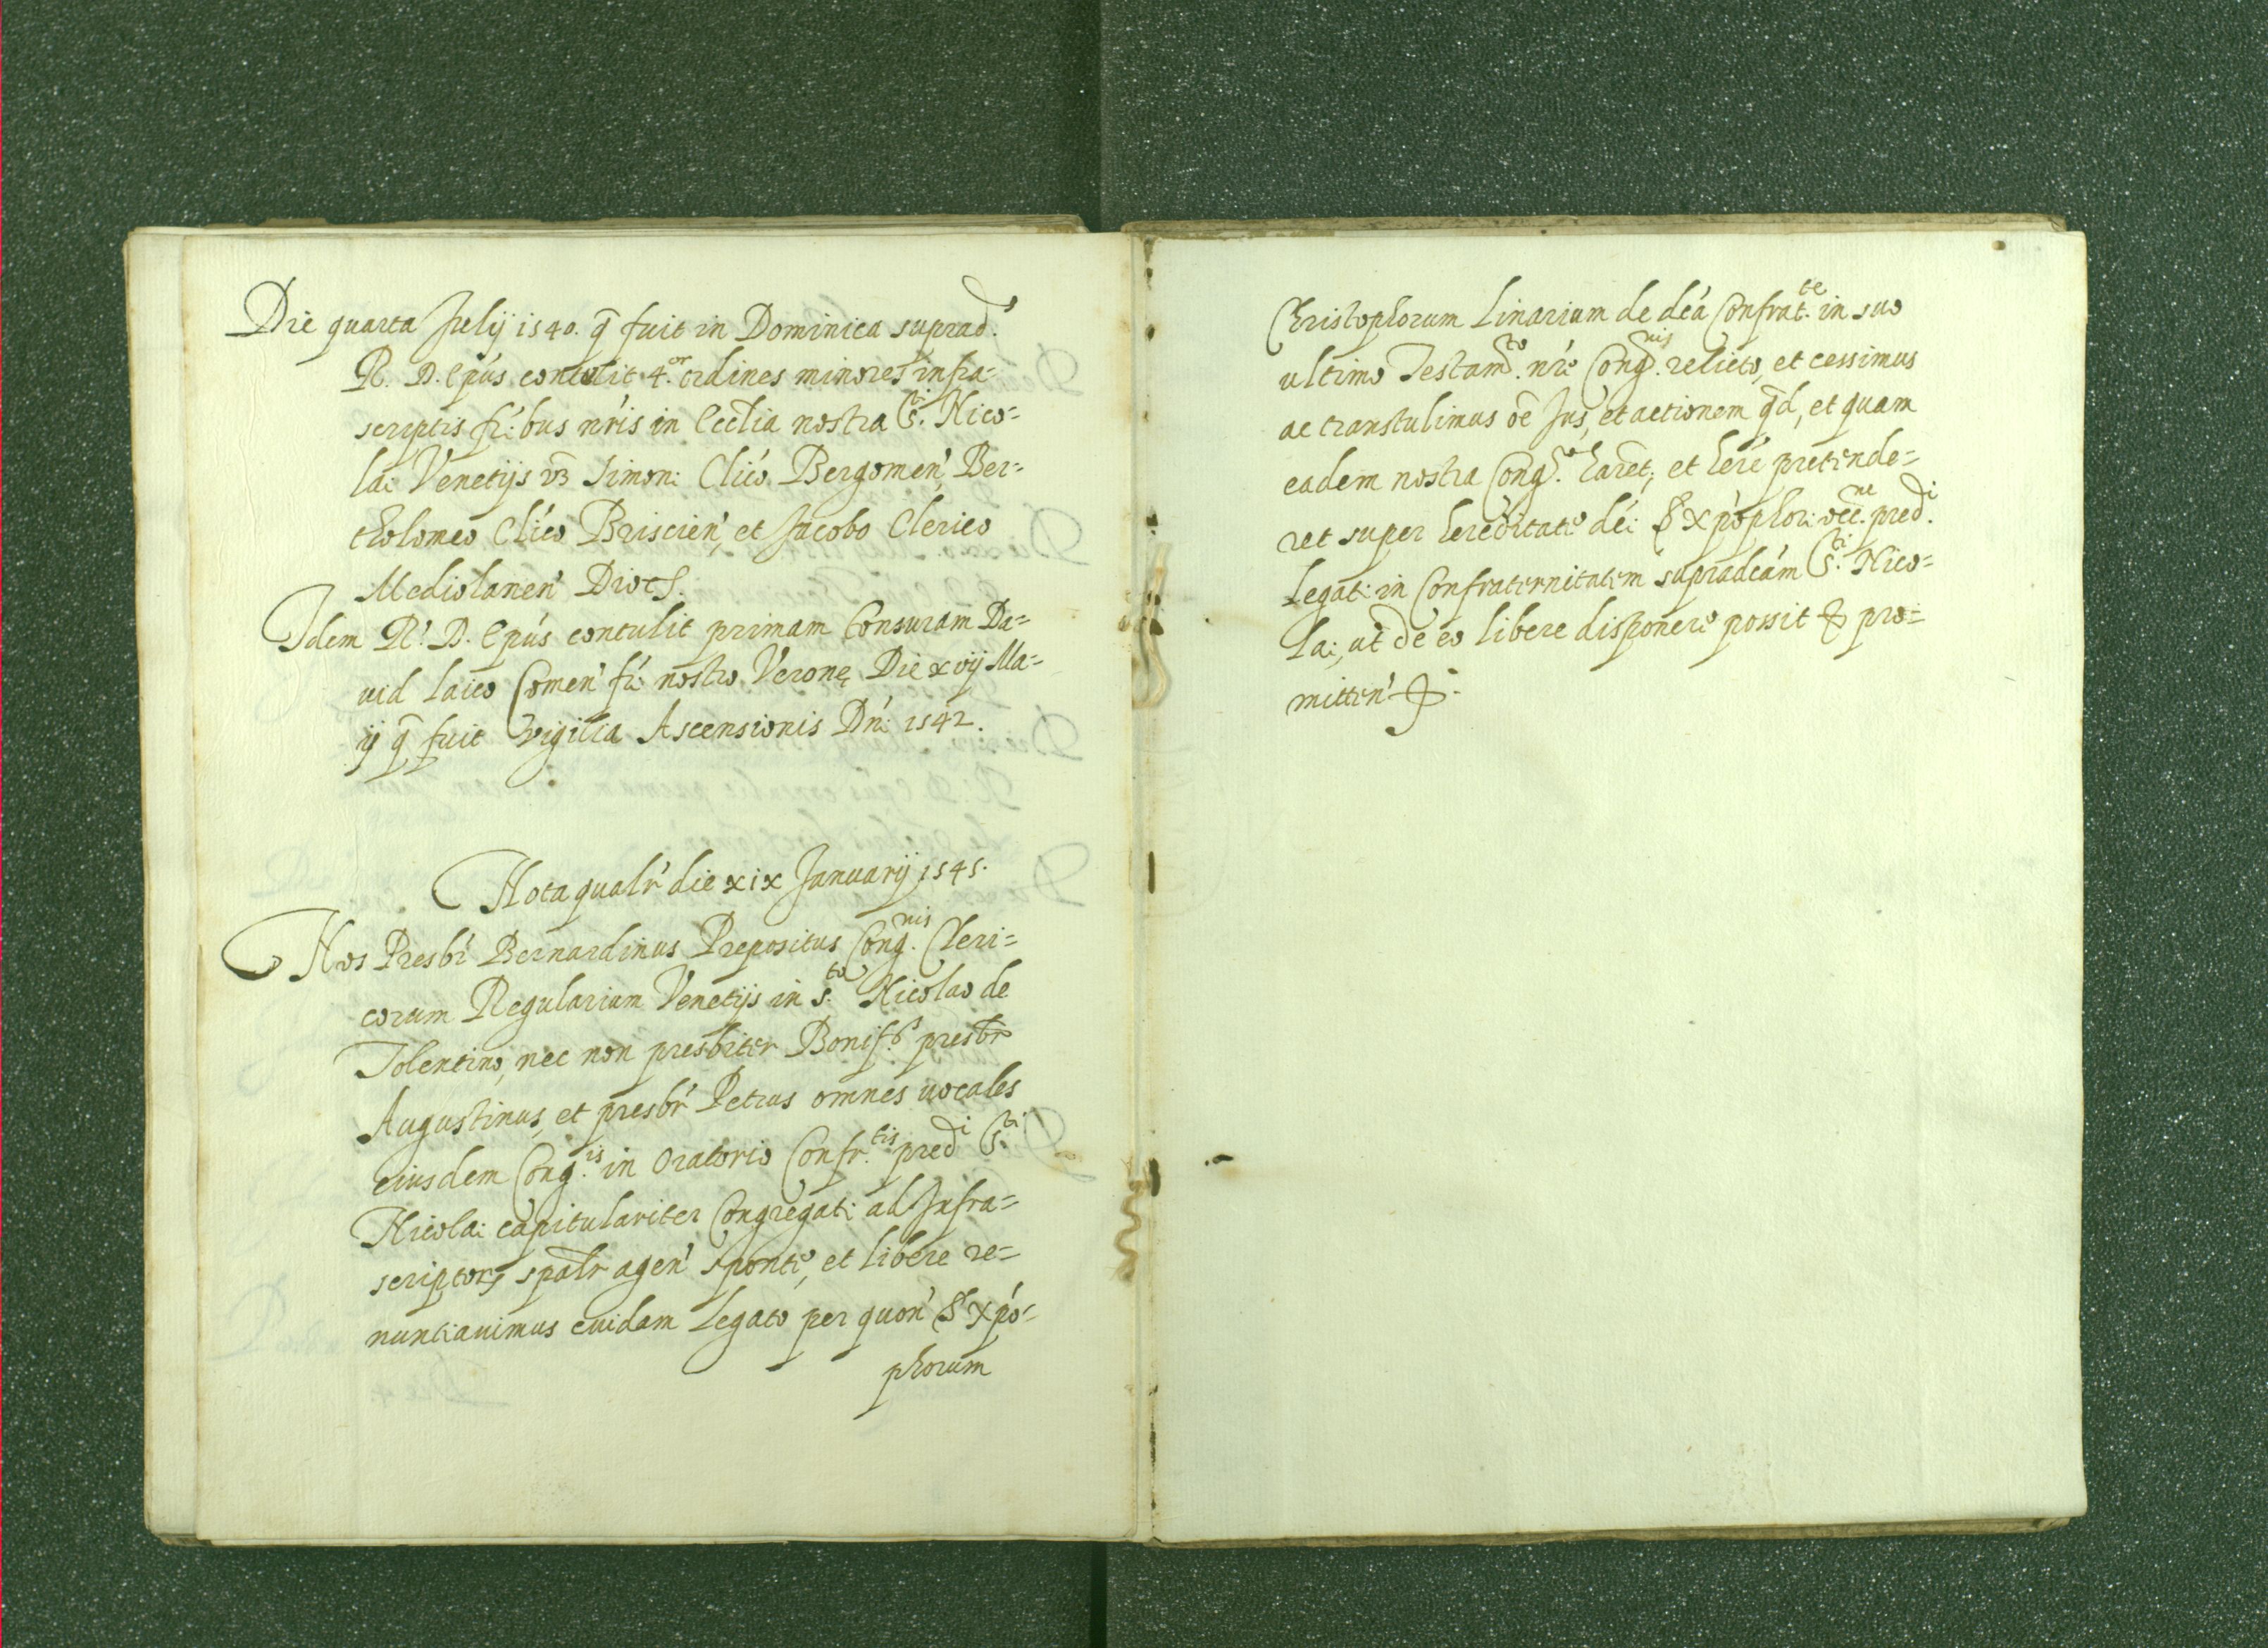 Die quarta Julij 1540. q̄ fuit in Dominica suprad.
R. D. Epús contulit 4.or ordines minores infra=
scriptis fr̃ibus nr̃is in Ecclia nostra S.ti Nico=
lai Venetijs vz Simoni Clico Bergomen̄, Ber=
tholomeo Clico Briscien̄, et Jacobo Clerico
Mediolanen̄ Dioc̄s.
Idem R. D. Epús contulit primam tonsuram Da=
uid laico Comen̄ fr̃i nostro Veronę Die xvij Ma=
ij q̄ fuit vigilia Ascensionis Dn̄i 1542.
Nota qualr̄ die xix Januarij 1545.
Nos Presbr̄ Bernardinus Prepositus Cong.nis Cleri=
corum Regularium Venetijs in s.to Nicolao de
Tolentino, nec non presbiter Bonif.s presbr̄
Augustinus, et presbr̄ Petrus omnes uocales
eiusdem Cong.is in Oratorio Confr.tis pred.i S.ti
Nicolai capitulariter Congregati ad Infra=
scriptorz spalr̄ agen̄ sponte, et libere re=
nuntiauimus cuidam legato per quon̄ S. Xpo=
phorum
Christophorum Linarium de dc̄a Confrat.te in suo
ultimo Testam.to nr̄e Cong.nis relicto, et cessimus
ac transtulimus oē Jus, et actionem q̄d, et quam
eadem nostra Cong.o har̄et, et her̄e pretende=
ret super hereditate dc̄i S Xpophori occ.ne pred.i
Legati in Confraternitatem supradcām S.ti Nico=
lai, ut de eo libere disponere possit & pro=
mitten̄ &.